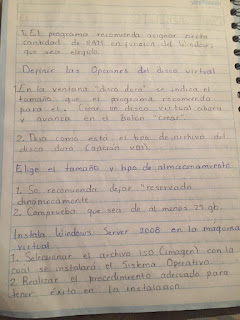 1. El programa recomienda asignar cierta
cantidad de RAM en función del Windows
que sea elegido.
Definir las Opciones del disco virtual
1. En la ventana "disco duro" se indica el
tamaño que el programa recomienda
para el. Crear un disco virtual ahora
y avanza en el botón "crear".
2. Deja como está el tipo de archivo del
disco duro (opción VDI)
Elige el tamaño y tipo de almacenamiento
1. Se recomienda dejar "reservado
dinámicamente"
2. Comprueba que sea de al menos 25 gb.
Instala Windows Server 2008 en la máquina
virtual
1. Seleccionar el archivo iso (imagen) con la
cual se instalará el Sistema Operativo
2. Realizar el procedimiento adecuado para
tener éxito en la instalación